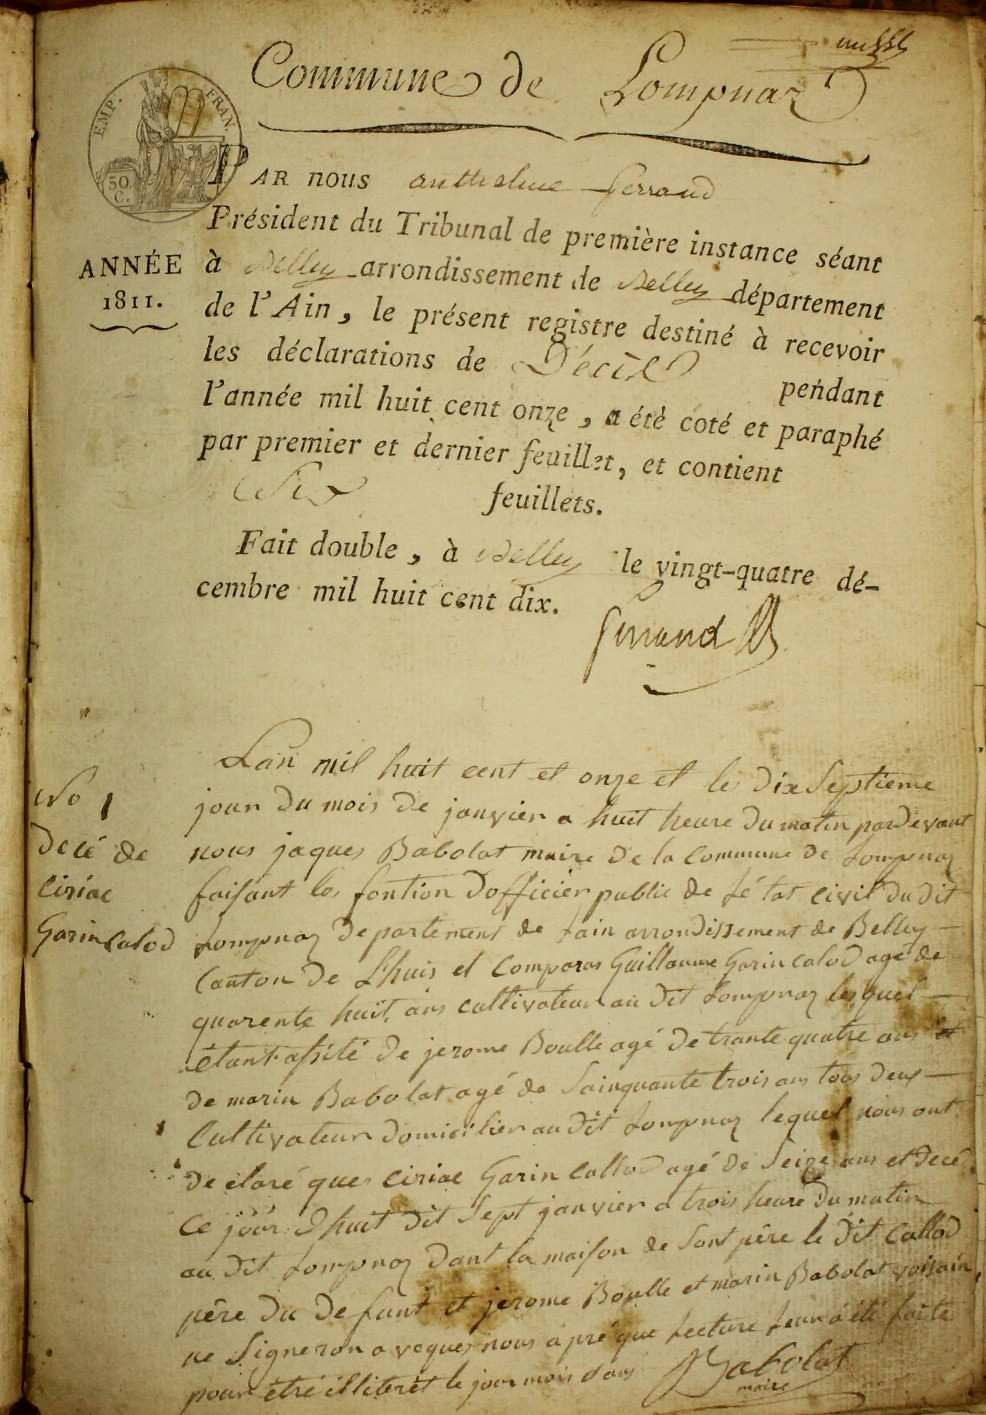 Commune de Lompnaz
EMP. FRAN.
50
C.
ANNÉE
1811.
PAR nous anthelme ferrand
Président du Tribunal de première instance séant
à Belley arrondissement de Belley département
de l'Ain, le présent registre destiné à recevoir
les déclarations de Décès pendant
l'année mil huit cent onze, a été coté et paraphé
par premier et dernier feuillet, et contient
Six feuillets.
Fait double, à Belley le vingt-quatre dé-
cembre mil huit cent dix.
ferrand
No 1
Decé de
Ciriac
Garin Calod
Lan mil huit cent et onze et le dix Septieme
jour du mois de janvier a huit heure du matin pardevant
nous jaques Babolat maire de la Commune de Lompnaz
faisant les fontion dofficier public de Létat civil du dit
Lompnaz departement de Lain arrondissement de Belley
Canton de Lhuis et Comparas Guillaume Garin Calod agé de
quarente huit ans cultivateur au dit Lompnaz lesquel
étant asisté de jerome Boulle agé de trante quatre ans et
de marin Babolat agé de Sainquante trois ans tous deux
Cultivateur domicilier au dit Lompnaz lequel nous ont
declaré ques Ciriac Garin Callod agé de Seize ans et decé
Ce jour dhuit dit Sept janvier a trois heure du matin
au dit Lompnaz dant la maison de Sont père le dit Callod
père du defunt et jerome Boulle et marin Babolat voisain
ne Signeron aveques nous apré que Lecture Leur a été faite
pour être illiteret le jour mois dans
Babolat
maire